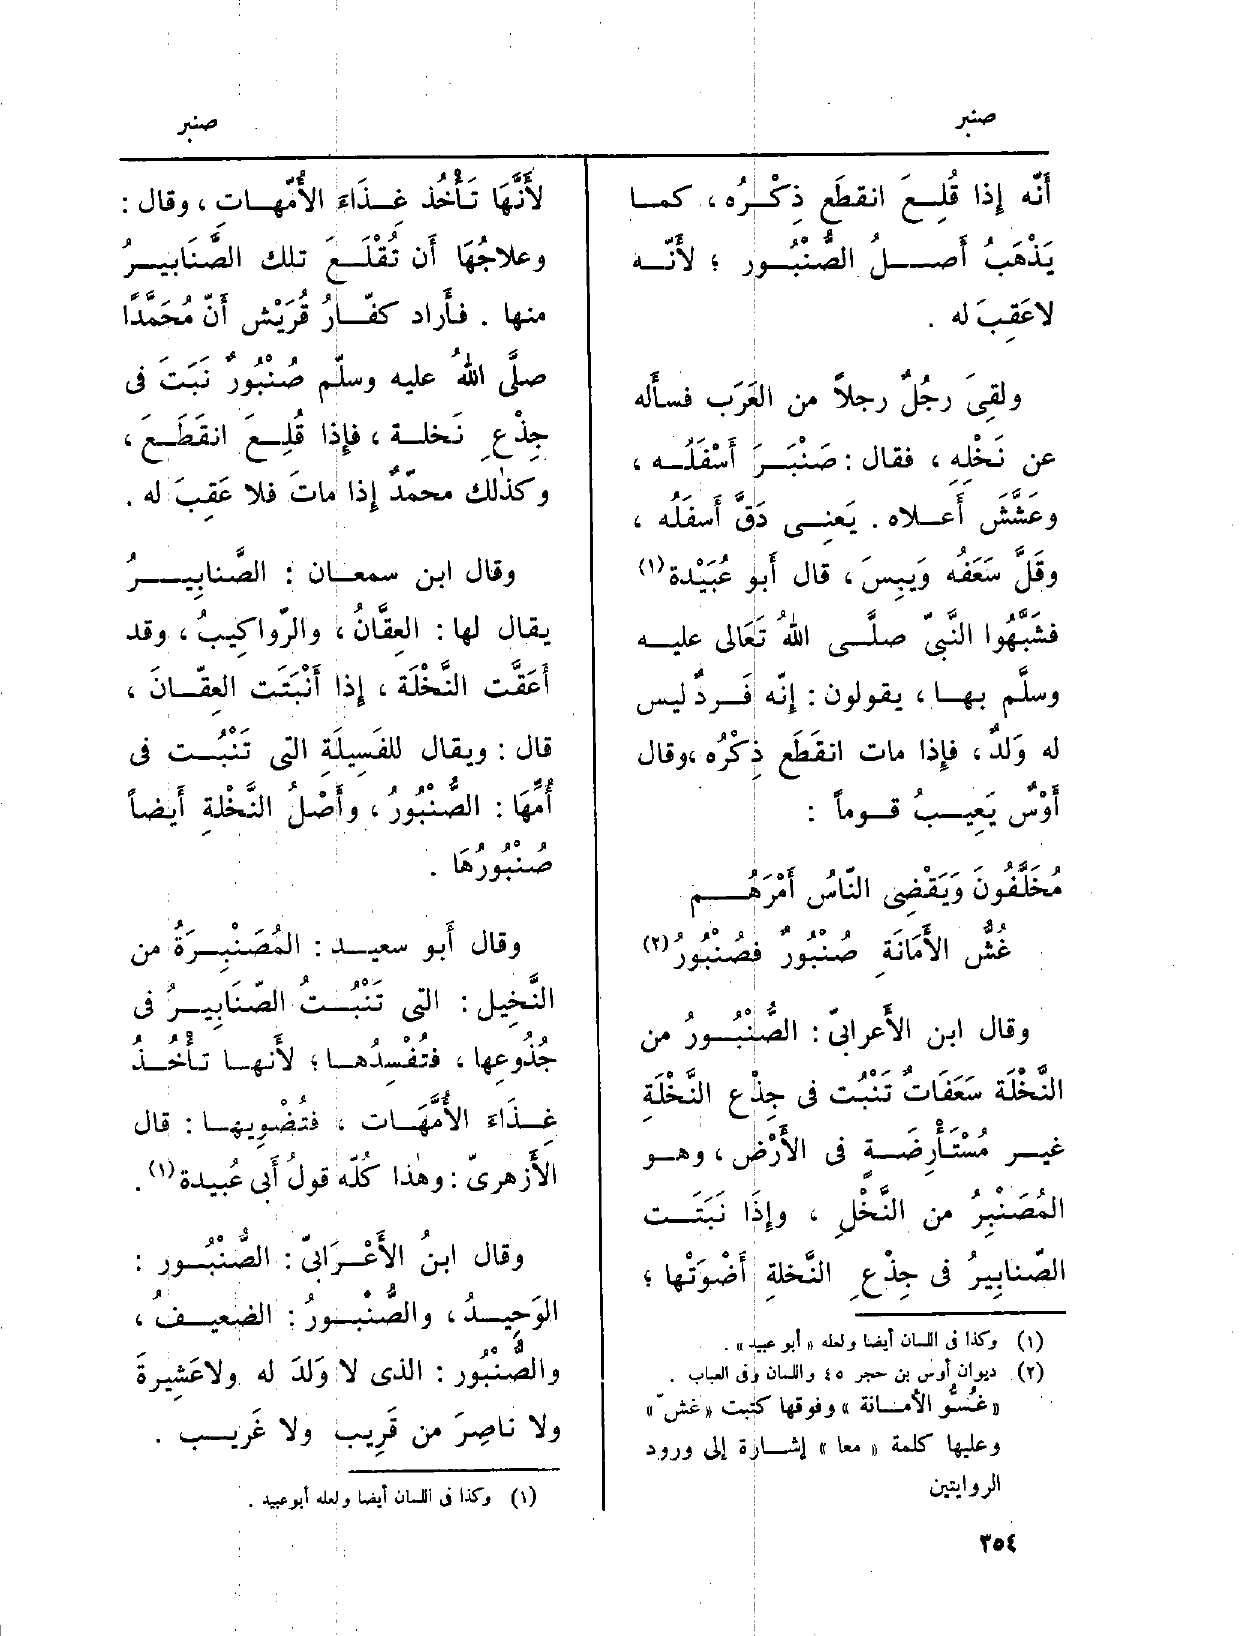 صنبر
صنبر
أنّه إذا قُلِعَ انقطَع ذِكْرُه ، كما
يَذْهَبُ أصلُ الصُّنْبُور ؛ لأنّه
لاعَقِبَ له .
ولقِىَ رجُلٌ رجلاً من العَرَب فسأله
عن نَخْلِهِ ، فقال : صَنْبَرَ أسْفَلُه ،
وعَشَّشَ أَعلاه . يَعنِى دَقَّ أسفلُه ،
وقَلَّ سَعَفُه وَيبِسَ ، قال أبو عُبَيْدة(١)
فشَبَّهُوا النَّبِىّ صلَّى اللهُ تَعَالَى عليه
وسلَّم بها ، يقولون : إنّه فَردٌ ليس
له وَلَدٌ ، فإذا مات انقطَع ذِكْرُه ،وقال
أَوْسٌ يَعِيبُ قوماً :
مُخَلَّفُونَ وَيَقْضِى النّاسُ أَمْرَهُم
غُشُّ الأَمَانَةِ صُنْبُورٌ فصُنْبُورُ(٢)
وقال ابن الأَعرابىّ : الصُّنْبُورُ من
النَّخْلَة سَعَفَاتٌ تَنْبُت فى جِذْع النَّخْلَةِ
غير مُسْتَأْرِضَةٍ فى الأَرْض ، وهو
المُصَنْبِرُ من النَّخْلِ ، وإذَا نَبَتَت
الصّنابِيرُ فى جِذْعِ النَّخلةِ أَضْوَتْها ؛
(١) وكذا فى اللسان أيضا ولعله « أبو عبيد » .
(٢) ديوان أوس بن حجر ٤٥ واللسان وفى العباب .
«غُسُّو الأَمانة» وفوقها كتبت «غش»
وعليها كلمة « معا » إشارة إلى ورود
الروايتين
لأَنَّهَا تَأْخُذ غِذَاءَ الأُمّهات ، وقال :
وعلاجُهَا أن تُقْلَعَ تلك الصَّنَابِيرُ
منها . فأَراد كفّارُ قُرَيْش أَنّ مُحَمَّدًا
صلَّى اللهُ عليه وسلّم صُنْبُورٌ نَبَتَ فى
جِذْعِ نَخلة ، فإذا قُلِعَ انقَطَعَ ،
وكذلك محمّدٌ إذا ماتَ فلا عَقِبَ له .
وقال ابن سمعان : الصَّنابِيرُ
يقال لها : العِقَّانُ ، والرّواكِيبُ ، وقد
أعَقَّت النَّخْلَةُ ، إذا أَنْبَتَت العِقّانَ ،
قال : ويقال للفَسِيلَةِ التى تَنْبُت فى
أُمِّهَا : الصُّنْبُورُ ، وأَصْلُ النَّخْلة أَيضاً
صُنْبُورُهَا .
وقال أَبو سعيد : المُصَنْبِرَةُ من
النَّخِيل : التى تَنْبُتُ الصّنَابِيرُ فى
جُذُوعِها ، فتُفْسِدُها ؛ لأَنها تأْخُذُ
غِذَاءَ الأُمَّهَات ، فتُضْوِيها : قال
الأَزهرىّ : وهٰذا كُلّه قولُ أَبى عُبيدة(١) .
وقال ابنُ الأَعْرَابىّ : الصُّنْبُور :
الوَحِيدُ ، والصُّنْبورُ : الضعيفُ ،
والصُّنْبُور : الذى لا وَلَدَ له ولاعَشِيرةَ
ولا ناصِرَ من قَرِيب ولا غَرِيب .
(١) وكذا فى اللسان أيضا ولعله أبوعبيد .
٣٥٤